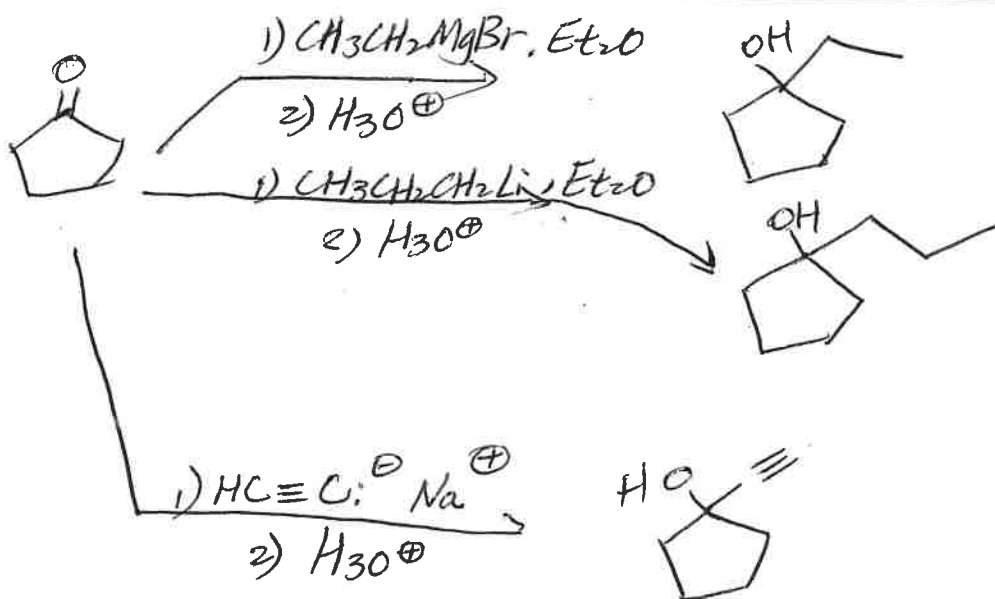 O
1) CH3CH2MgBr, Et2O
2) H3O⊕
OH
1) CH3CH2CH2Li, Et2O
2) H3O⊕
OH
1) HC≡C:⊖ Na⊕
2) H3O⊕
HO